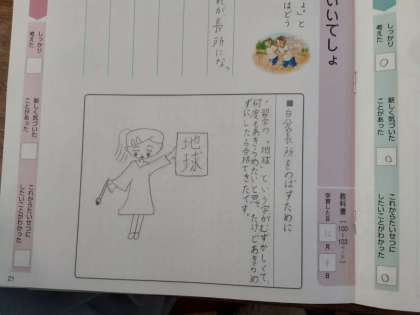 いいでしょ
よ。」と
はどう
れが長所にな。
しっかり
考えた
新しく気づいた
ことがあった
これからたいせつに
したいことがわかった
■自分の長所をのばすために
・習字の、地球、という字がむずかしくて、
何度もあきらめたいと思ったけどあきらめ
ずにしたら合格できたです。
地球
教科書
100
103
ページ
学習した日
月
日
しっかり
考えた
新しく気づいた
ことがあった
これからたいせつに
したいことがわかった